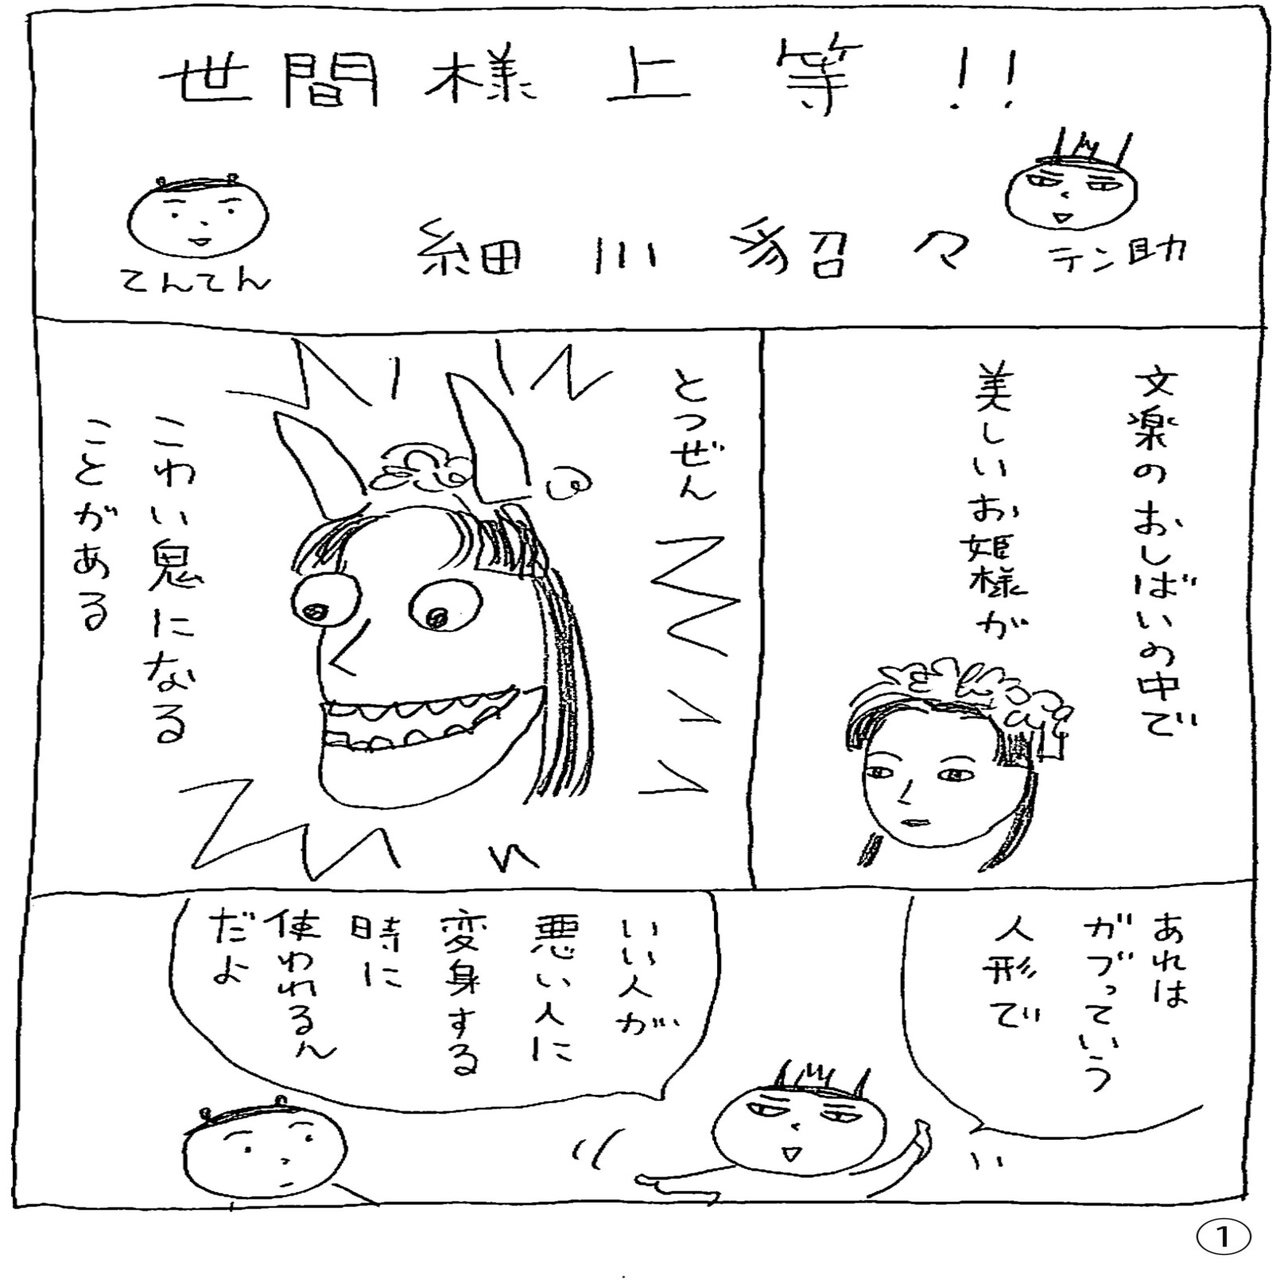 世間様上等!!
てんてん
細川貂々
テン助
文楽のおしばいの中で
美しいお姫様が
とつぜん
こわい鬼になる
ことがある
あれは
ガブっていう
人形で
いい人が
悪い人に
変身する
時に
使われるん
だよ
1